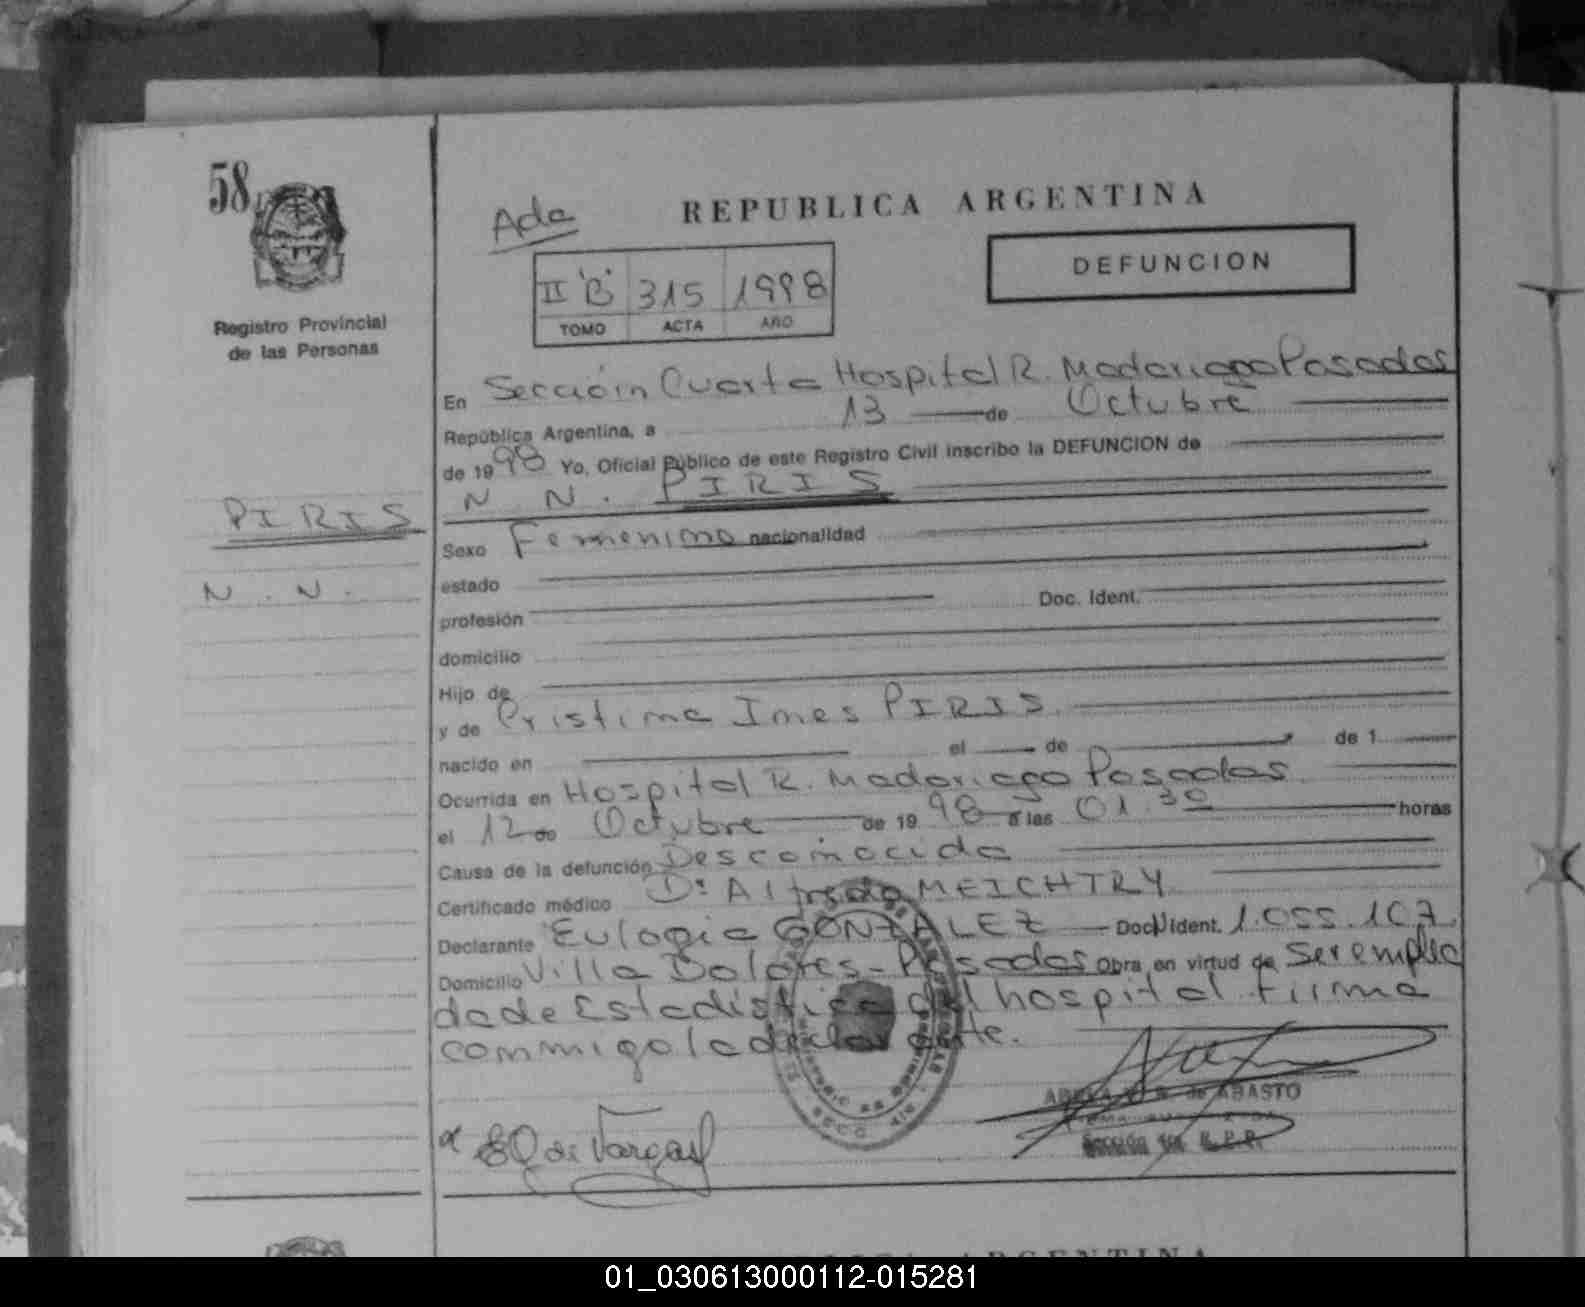 58
Registro Provincial
de las Personas
Ada
REPUBLICA ARGENTINA
DEFUNCION
II "B" 315 1998
TOMO ACTA AÑO
En Sección Cuarta Hospital R. Madariaga Posadas
República Argentina, a 13 de Octubre
de 1998 Yo, Oficial Público de este Registro Civil inscribo la DEFUNCION de
N. N. PIRIS
PIRIS
N. N.
Sexo Femenino nacionalidad
estado
profesión Doc. Ident.
domicilio
Hijo de
y de Cristina Ines PIRIS
nacido en el de de 1
Ocurrida en Hospital R. Madariaga Posadas
el 12 de Octubre de 1998 a las 01.30 horas
Causa de la defunción Desconocida
Certificado médico Dr Alfredo MEICHTRY
Declarante Eulogia GONZALEZ Doc. Ident. 1.055.107
Domicilio Villa Dolores - Posadas Obra en virtud de Ser emplea
da de Estadística del hospital firma
conmigo la declarante.
de ABASTO
de Vargas
REPUBLICA ARGENTINA
01_030613000112-015281